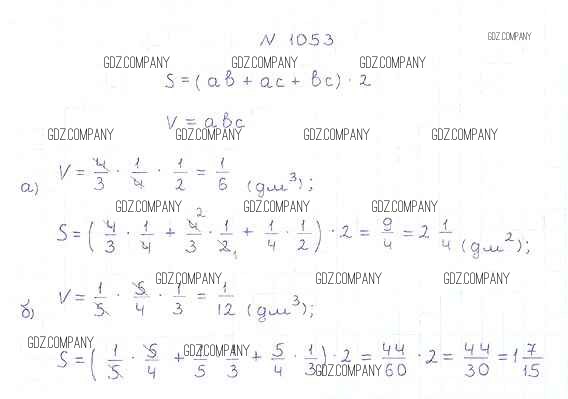 N 1053
GDZ.COMPANY
GDZ.COMPANY GDZ.COMPANY GDZ.COMPANY
S = (ab + ac + bc) · 2
V = abc
GDZ.COMPANY GDZ.COMPANY GDZ.COMPANY GDZ.COMPANY
а) V = 4/3 · 1/4 · 1/2 = 1/6 (дм³);
GDZ.COMPANY GDZ.COMPANY GDZ.COMPANY
S = (4/3 · 1/4 + 4/3 · 1/2 + 1/4 · 1/2) · 2 = 9/4 = 2 1/4 (дм²);
GDZ.COMPANY GDZ.COMPANY GDZ.COMPANY
б) V = 1/5 · 5/4 · 1/3 = 1/12 (дм³);
GDZ.COMPANY GDZ.COMPANY
S = (1/5 · 5/4 + 1/5 · 1/3 + 5/4 · 1/3) · 2 = 44/60 · 2 = 44/30 = 1 7/15
GDZ.COMPANY